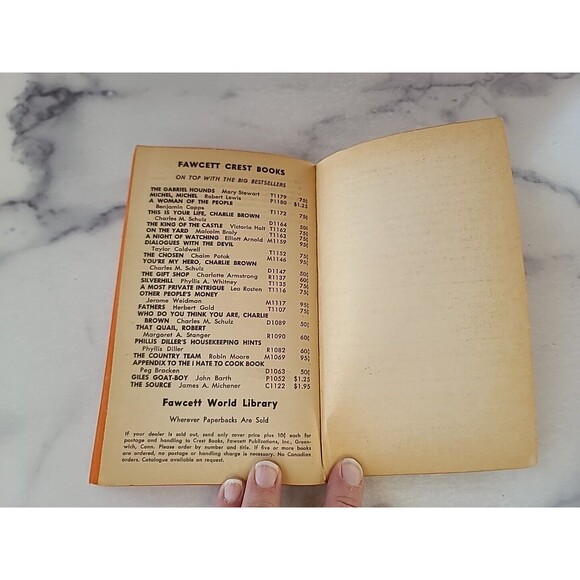 FAWCETT CREST BOOKS
ON TOP WITH THE BIG BESTSELLERS
THE GABRIEL HOUNDS Mary Stewart T1179 75¢
MICHEL, MICHEL Robert Lewis P1180 $1.25
A WOMAN OF THE PEOPLE
Benjamin Capps T1172 75¢
THIS IS YOUR LIFE, CHARLIE BROWN
Charles M. Schulz D1164 50¢
THE KING OF THE CASTLE Victoria Holt T1162 75¢
ON THE YARD Malcolm Braly T1163 75¢
A NIGHT OF WATCHING Elliott Arnold M1159 95¢
DIALOGUES WITH THE DEVIL
Taylor Caldwell T1152 75¢
THE CHOSEN Chaim Potok M1146 95¢
YOU'RE MY HERO, CHARLIE BROWN
Charles M. Schulz D1147 50¢
THE GIFT SHOP Charlotte Armstrong R1137 60¢
SILVERHILL Phyllis A. Whitney T1135 75¢
A MOST PRIVATE INTRIGUE Leo Rosten T1116 75¢
OTHER PEOPLE'S MONEY
Jerome Weidman M1117 95¢
FATHERS Herbert Gold T1107 75¢
WHO DO YOU THINK YOU ARE, CHARLIE
BROWN Charles M. Schulz D1089 50¢
THAT QUAIL, ROBERT
Margaret A. Stanger R1090 60¢
PHILLIS DILLER'S HOUSEKEEPING HINTS
Phyllis Diller R1082 60¢
THE COUNTRY TEAM Robin Moore M1069 95¢
APPENDIX TO THE I HATE TO COOK BOOK
Peg Bracken D1063 50¢
GILES GOAT-BOY John Barth P1052 $1.25
THE SOURCE James A. Michener C1122 $1.95
Fawcett World Library
Wherever Paperbacks Are Sold
If your dealer is sold out, send only cover price plus 10¢ each for
postage and handling to Crest Books, Fawcett Publications, Inc., Green-
wich, Conn. Please order by number and title. If five or more books
are ordered, no postage or handling charge is necessary. No Canadian
orders. Catalogue available on request.